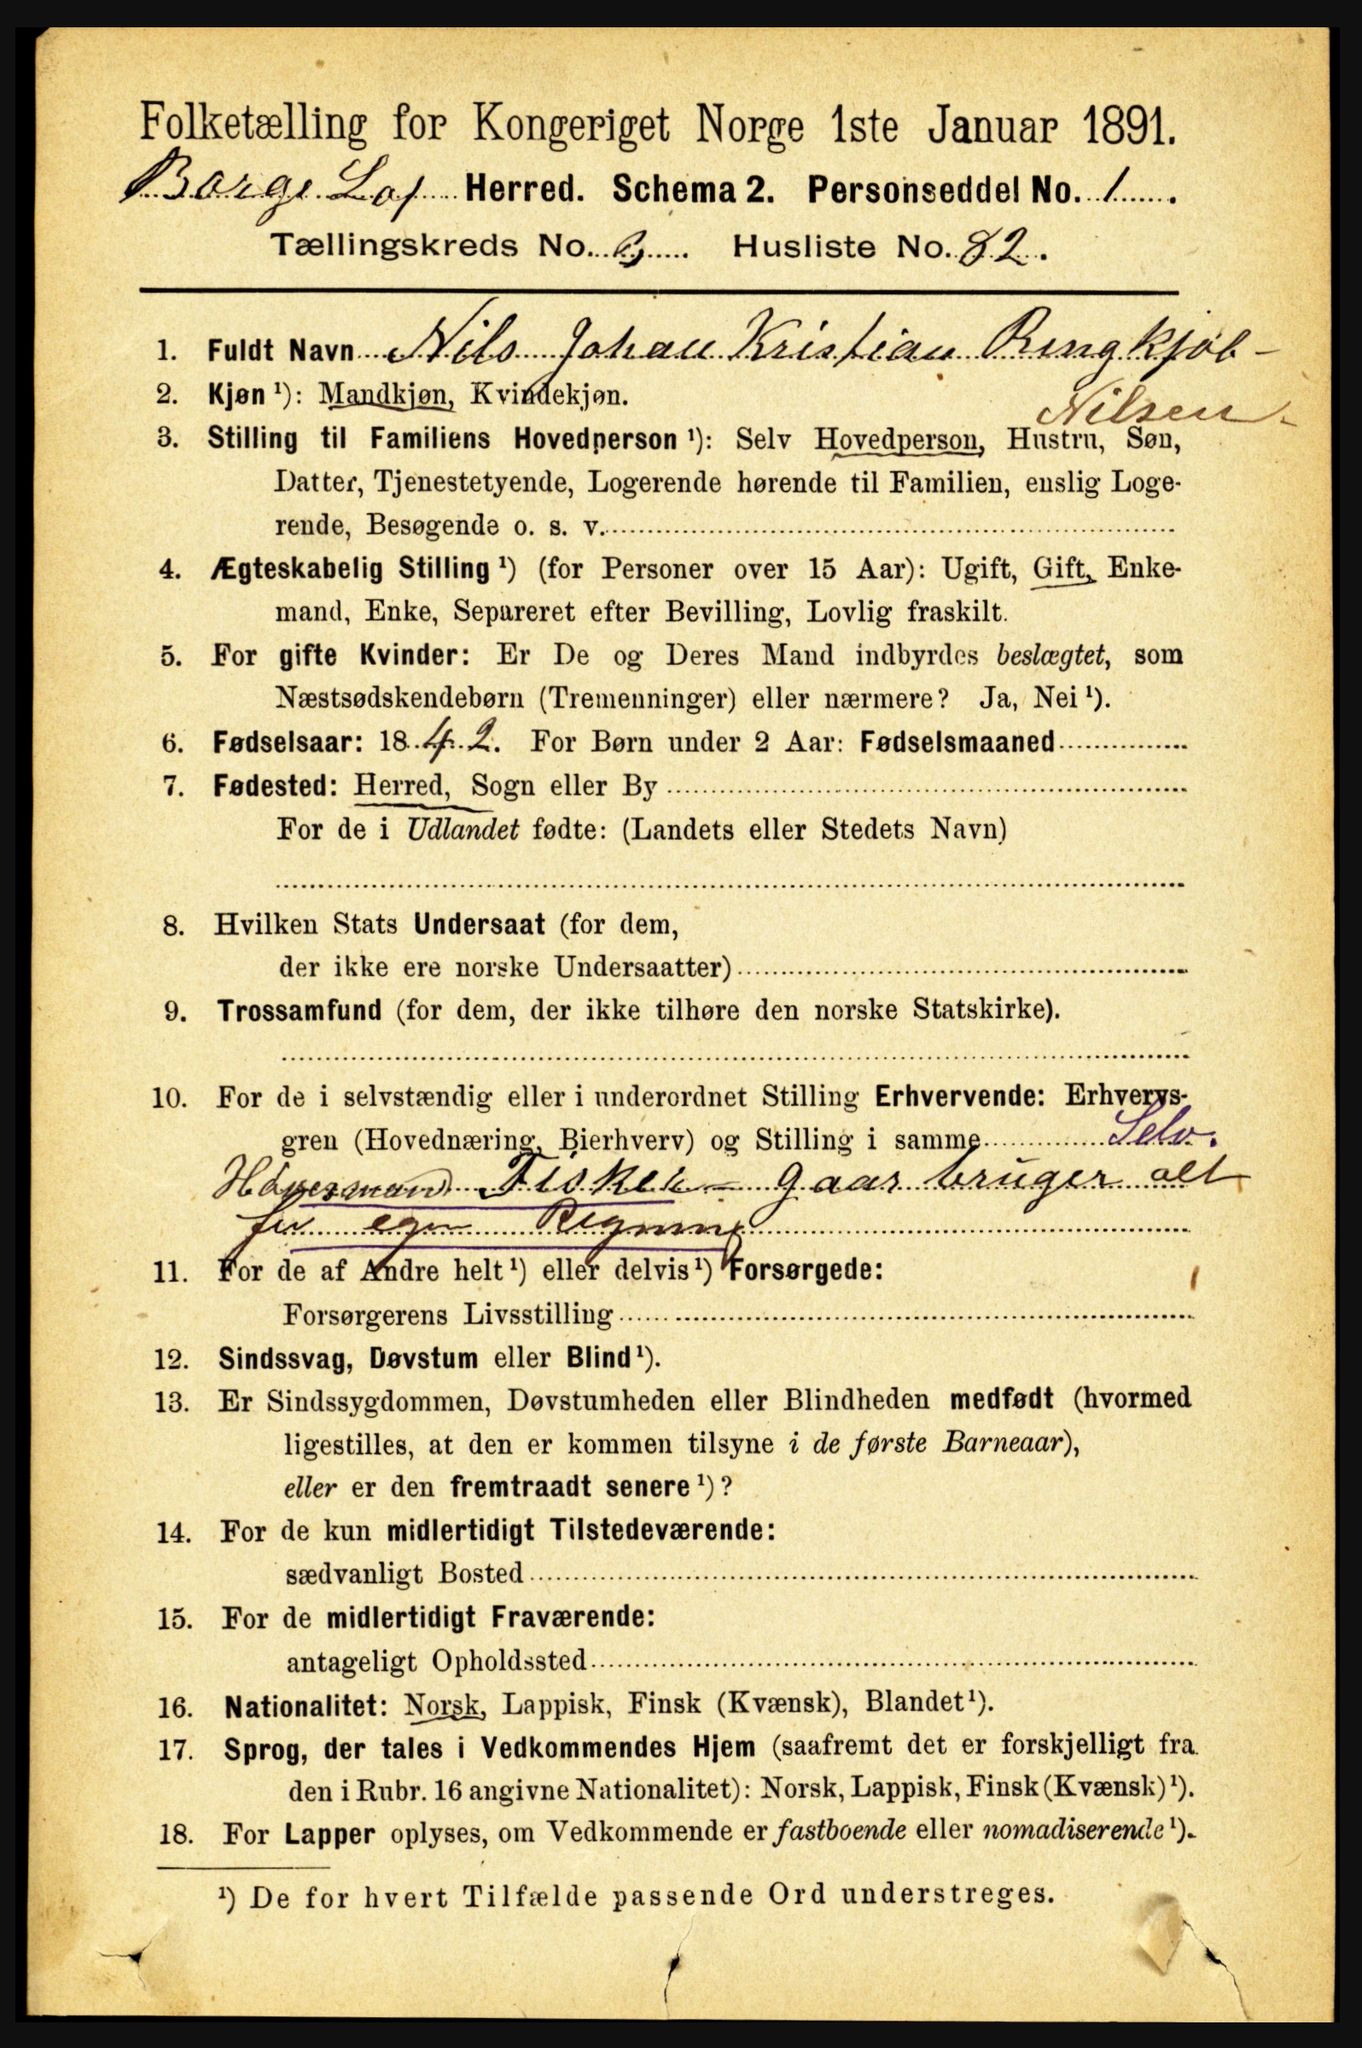 Folketælling for Kongeriget Norge 1ste Januar 1891.
Borge Lof Herred. Schema 2. Personseddel No. 1.
Tællingskreds No. Husliste No. 82.
1. Fuldt Navn Nils Johan Kristian Ringkjøb-
Nilsen
2. Kjøn ¹): Mandkjøn, Kvindekjøn.
3. Stilling til Familiens Hovedperson ¹): Selv Hovedperson, Hustru, Søn,
Datter, Tjenestetyende, Logerende hørende til Familien, enslig Loge-
rende, Besøgende o. s. v.
4. Ægteskabelig Stilling ¹) (for Personer over 15 Aar): Ugift, Gift, Enke-
mand, Enke, Separeret efter Bevilling, Lovlig fraskilt.
5. For gifte Kvinder: Er De og Deres Mand indbyrdes beslægtet, som
Næstsødskendebørn (Tremenninger) eller nærmere? Ja, Nei ¹).
6. Fødselsaar: 1842. For Børn under 2 Aar: Fødselsmaaned
7. Fødested: Herred, Sogn eller By
For de i Udlandet fødte: (Landets eller Stedets Navn)
8. Hvilken Stats Undersaat (for dem,
der ikke ere norske Undersaatter)
9. Trossamfund (for dem, der ikke tilhøre den norske Statskirke).
10. For de i selvstændig eller i underordnet Stilling Erhvervende: Erhvervs-
gren (Hovednæring, Bierhverv) og Stilling i samme Selv.
Fisker - gaar bruger alt
for egen Regning
11. For de af Andre helt ¹) eller delvis ¹) Forsørgede:
Forsørgerens Livsstilling
12. Sindssvag, Døvstum eller Blind ¹).
13. Er Sindssygdommen, Døvstumheden eller Blindheden medfødt (hvormed
ligestilles, at den er kommen tilsyne i de første Barneaar),
eller er den fremtraadt senere ¹)?
14. For de kun midlertidigt Tilstedeværende:
sædvanligt Bosted
15. For de midlertidigt Fraværende:
antageligt Opholdssted
16. Nationalitet: Norsk, Lappisk, Finsk (Kvænsk), Blandet ¹).
17. Sprog, der tales i Vedkommendes Hjem (saafremt det er forskjelligt fra
den i Rubr. 16 angivne Nationalitet): Norsk, Lappisk, Finsk (Kvænsk) ¹).
18. For Lapper oplyses, om Vedkommende er fastboende eller nomadiserende ¹).
¹) De for hvert Tilfælde passende Ord understreges.